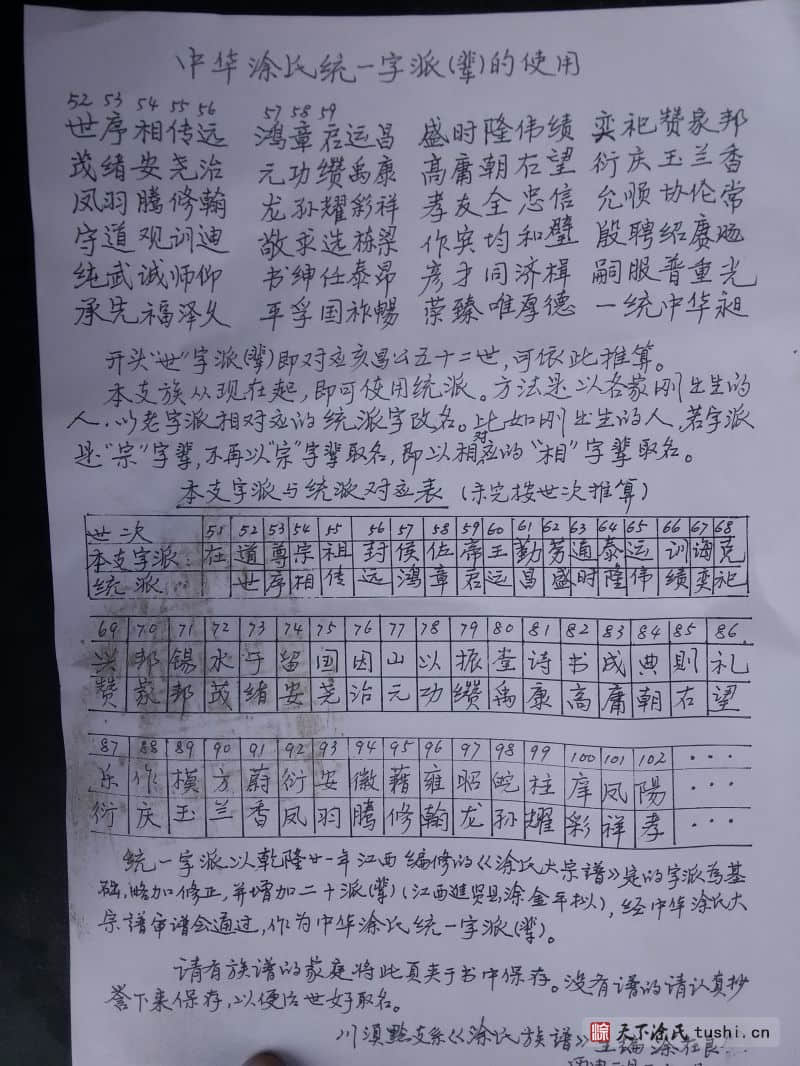 中华涂氏统一字派(辈)的使用
52 53 54 55 56 57 58 59
世序相传远 鸿章启运昌 盛时隆伟绩 奕祀赞家邦
茂绪安尧治 元功缵禹康 高庸朝右望 衍庆玉兰香
凤羽腾修翰 龙孙耀彩祥 孝友全忠信 允顺协伦常
守道观训迪 敬求选栋梁 作宾均和璧 殷聘绍赓飏
纯武诚师仰 书绅任泰昂 彦才同济楫 嗣服普重光
承先福泽久 平孚国祚畅 荣臻唯厚德 一统中华昶
开头“世”字派(辈)即对应亥昌公五十二世,可依此推算。
本支族从现在起,即可使用统派。方法是以各家刚出生的
人,以老字派相对应的统派字改名。比如刚出生的人,若字派
是“宗”字辈,不再以“宗”字辈取名,即以相对应的“相”字辈取名。
本支字派与统派对应表(未完按世次推算)
世次 51 52 53 54 55 56 57 58 59 60 61 62 63 64 65 66 67 68
本支字派: 在 道 尊 宗 祖 封 侯 佐 帝 王 勤 劳 通 泰 运 训 海 克
统派 世 序 相 传 远 鸿 章 启 运 昌 盛 时 隆 伟 绩 奕 祀
69 70 71 72 73 74 75 76 77 78 79 80 81 82 83 84 85 86
兴 邦 锡 水 于 留 国 因 山 以 振 堂 诗 书 成 典 则 礼
赞 家 邦 茂 绪 安 尧 治 元 功 缵 禹 康 高 庸 朝 右 望
87 88 89 90 91 92 93 94 95 96 97 98 99 100 101 102 ···
乐 作 模 方 蔚 衍 安 徽 藉 雍 昭 柱 庠 凤 陽 ···
衍 庆 玉 兰 香 凤 羽 腾 修 翰 龙 孙 耀 彩 祥 孝 ···
统一字派以乾隆廿一年江西编修的《涂氏大宗谱》定的字派为基
础,略加修正,并增加二十派(辈)(江西進贤县涂金平拟),经中华涂氏大
宗谱审谱会通过,作为中华涂氏统一字派(辈)。
请有族谱的家庭将此页夹于书中保存。没有谱的请认真抄
誊下来保存,以便后世好取名。
川滇黔支系《涂氏族谱》主编涂在良
涂 天下涂氏 tushi.cn